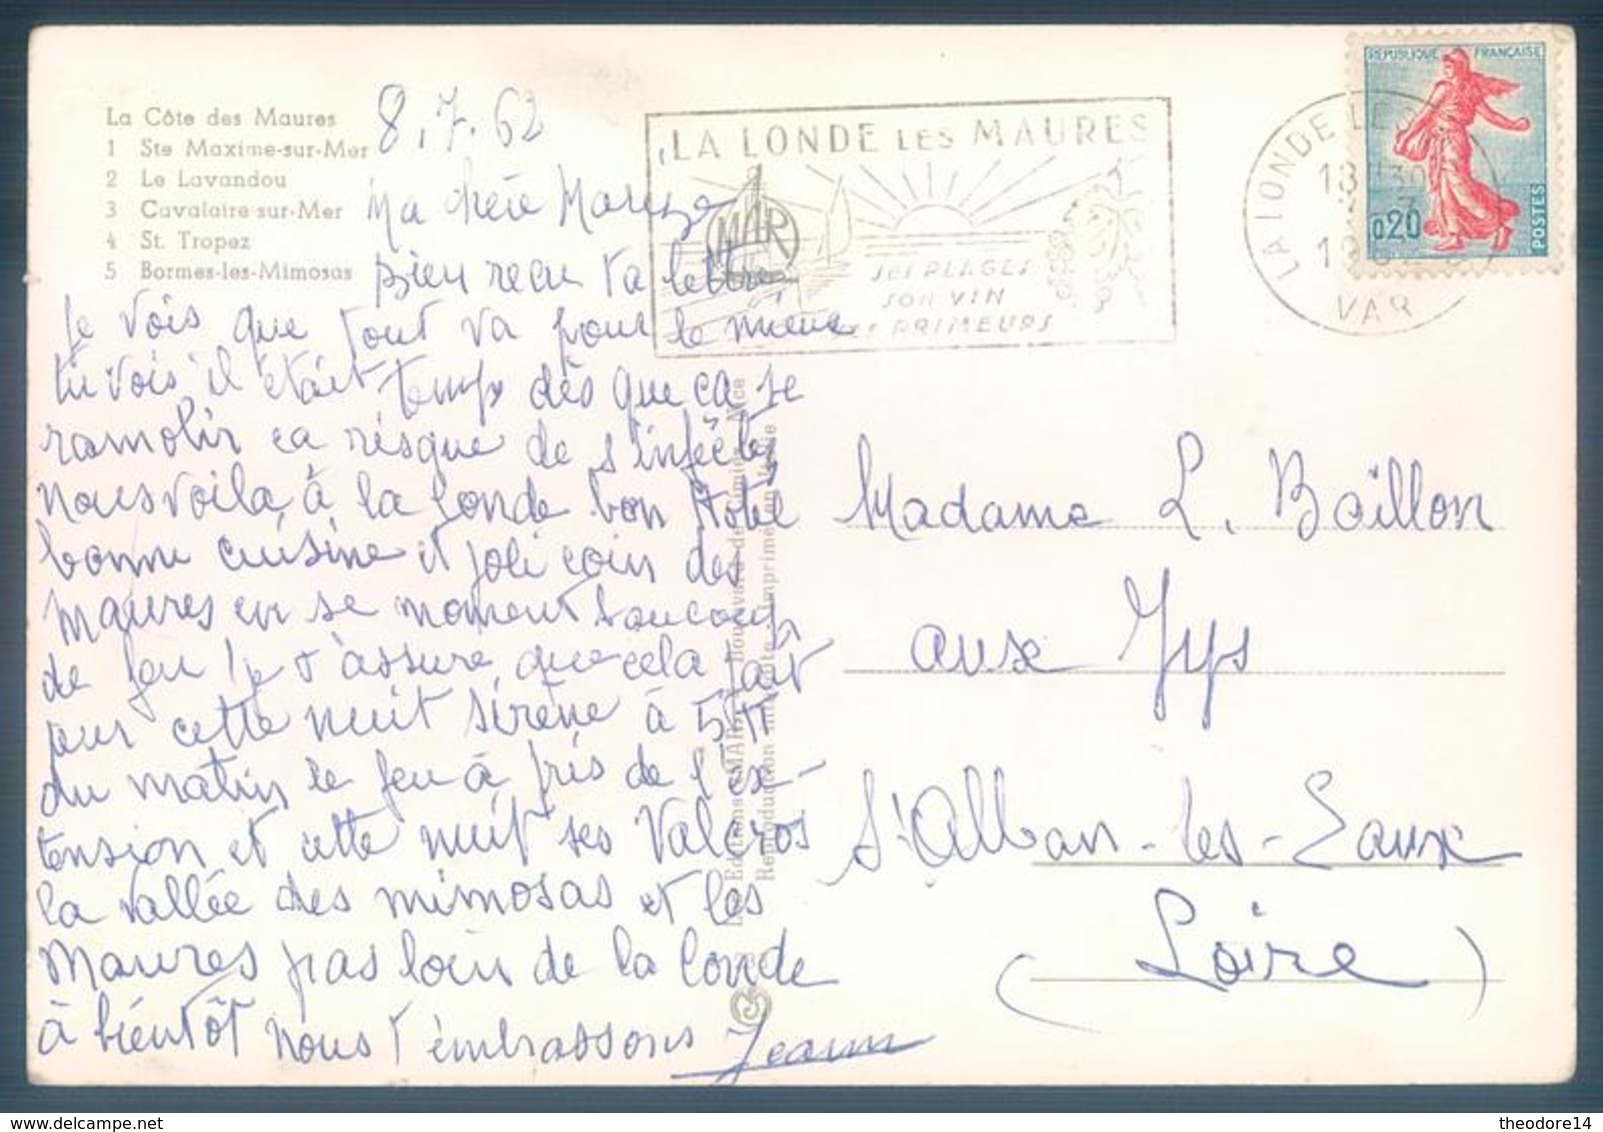 La Côte des Maures
1 Ste Maxime-sur-Mer
2 Le Lavandou
3 Cavalaire-sur-Mer
4 St. Tropez
5 Bormes-les-Mimosas
8.7.62
Ma chère
bien reçu ta lettre
je vois que tout va pour le mieux
tu vois il était temps dès que ça se
ramolir ca risque de s'infecter
nous voila à la Londe bon Hotel
bonne cuisine et joli coin des
Maures en se moment beaucoup
de feu je t'assure que cela fait
peur cette nuit sirène à 5 H
du matin le feu à pris de l'ex-
tension et cette nuit ses Valcros
la vallée des mimosas et les
Maures pas loin de la londe
à bientôt nous t'embrassons
LA LONDE LES MAURES
MAR
SES PLAGES
SON VIN
PRIMEURS
LA LONDE LES
VAR
REPUBLIQUE FRANÇAISE
0,20
POSTES
Madame L. Baillon
aux Iys
St Alban-les-Eaux
(Loire)
theodore14